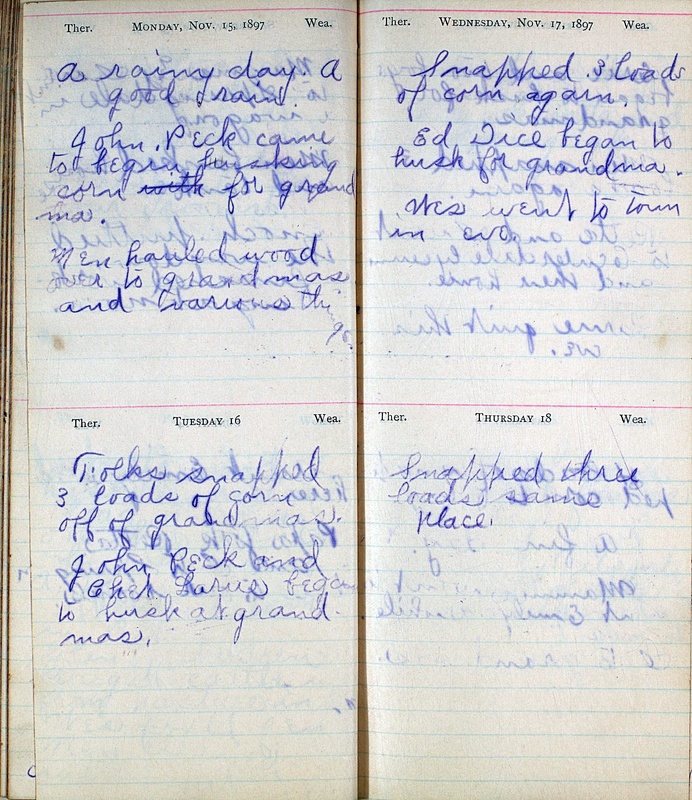 Ther. MONDAY, NOV. 15, 1897 Wea.
A rainy day. A
good rain.
John Peck came
to begin husking
corn with for grand
ma.
Men hauled wood
over to grandmas
and various things.
Ther. TUESDAY 16 Wea.
Folks snapped
3 loads of corn
off of grandmas.
John Peck and
Chet began
to husk at grand
mas.
Ther. WEDNESDAY, NOV. 17, 1897 Wea.
Snapped 3 loads
of corn again.
Ed Tice began to
husk for grandma.
Wes went to town
in eve.
Ther. THURSDAY 18 Wea.
Snapped three
loads same
place.